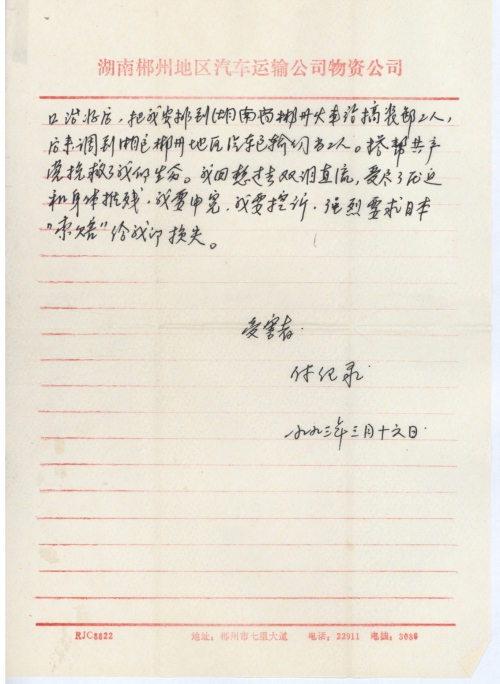 湖南郴州地区汽车运输公司物资公司
口治好后，把我安排到(湖)南省郴州火车站搞装卸工人，
后来调到湘民郴州地区汽车运输公司当工人。搭帮共产
党挽救了我的生命。我回想过去双泪直流，受尽了压迫
和身体摧残，我要申冤，我要控诉，强烈要求日本
“索赔”给我的损失。
受害者
付纪录
一九九三年三月十六日
RJC8822 地址：郴州市七里大道 电话：22911 电挂：3086